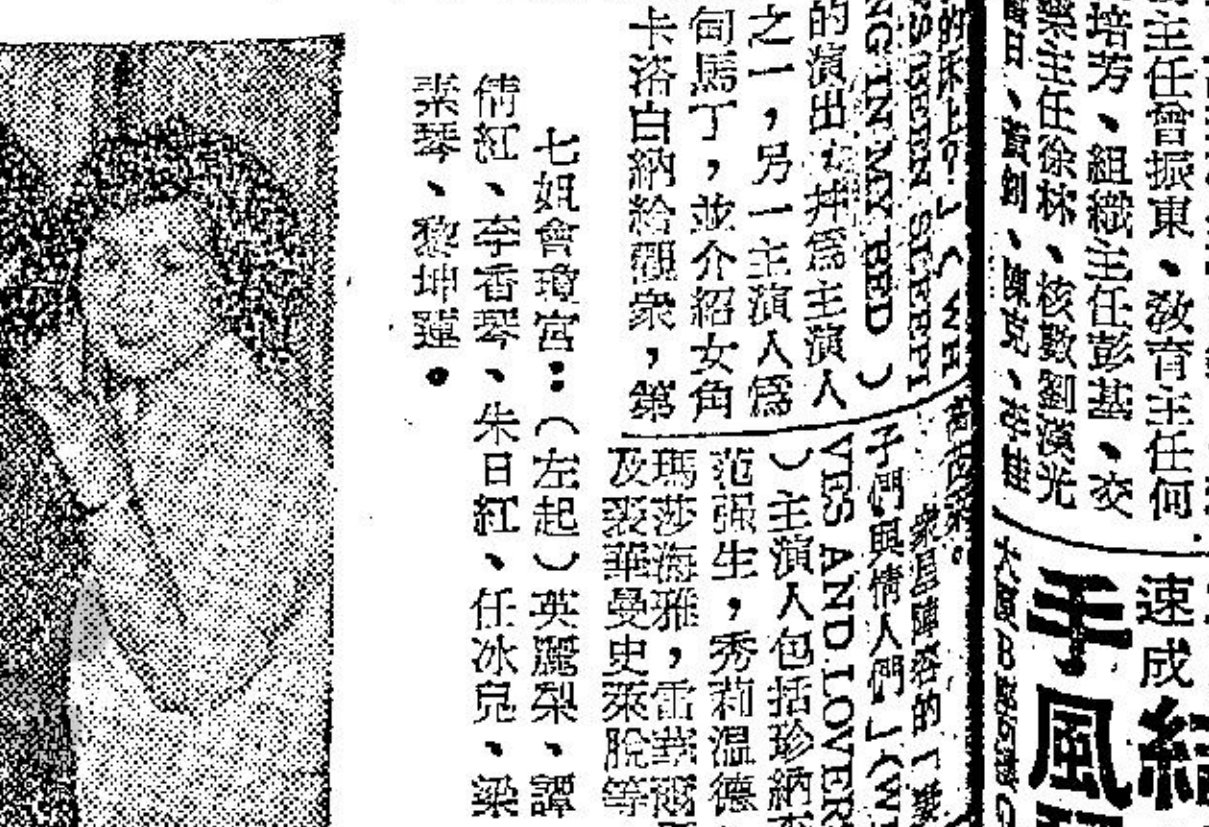 主任曾振東、敎育主任何
培芳、組織主任彭基、交
樂主任徐林、核數劉漢光
、陳克、李佳
速成
手風
大廈B座
NG IN MY BED）
的演出女幷爲主演人
之一，另一主演人爲
甸馬丁，並介紹女角
卡洛白納給觀衆，第
衆星陣容的「妻
子們與情人們」（WI
VES AND LOVER
）主演人包括珍納李
范强生，秀莉溫德
瑪莎海雅，雷華爾
及裘華曼史萊脫等
七姐會瓊宮：（左起）英麗梨、譚
倩紅、李香琴、朱日紅、任冰兒、梁
素琴、黎坤蓮。